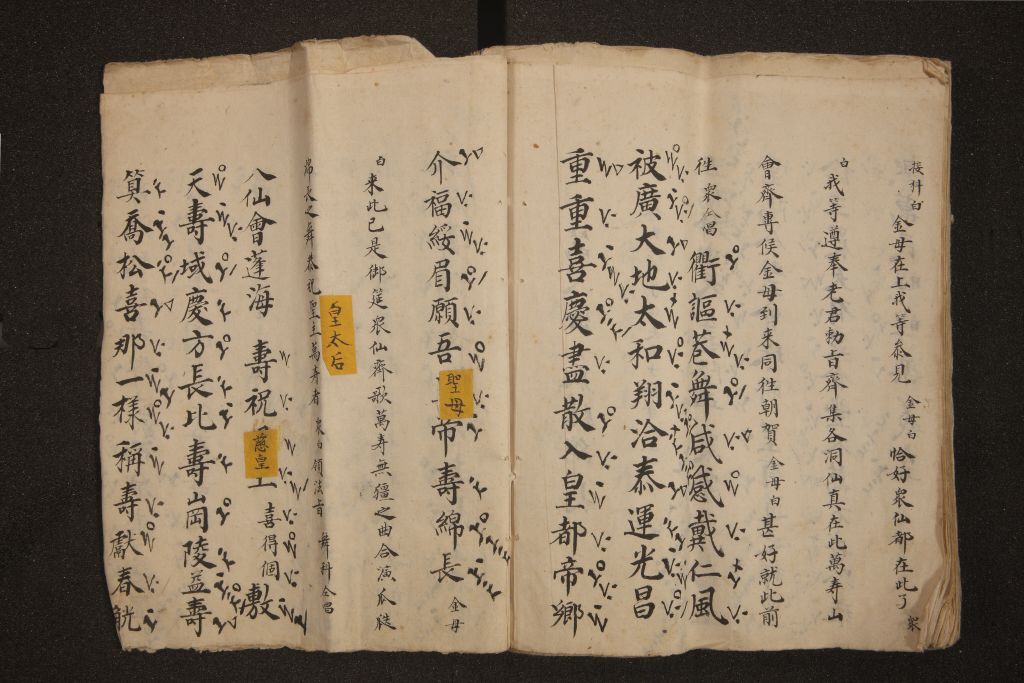 接科白 金母在上我等叅見 金母白 恰好衆仙都在此了 衆
白 我等遵奉老君勅旨齊集各洞仙真在此萬壽山
會齊專候金母到来同徃朝賀 金母白 甚好就此前
徃 衆仝唱 衢謳巷舞咸感戴仁風
被廣大地太和翔洽泰運光昌
重重喜慶盡散入皇都帝鄉
介福綏眉願吾聖母帝壽綿長 金母
白 来此已是御筵衆仙齊歌萬壽無疆之曲合演
皇太后
常長之舞恭祝聖主萬壽者 衆白 領法旨 舞科仝唱
八仙會蓬海 壽祝慈皇 喜得個敷
天壽域慶方長比壽岡陵益壽
筭喬松喜那一樣稱壽獻春觥